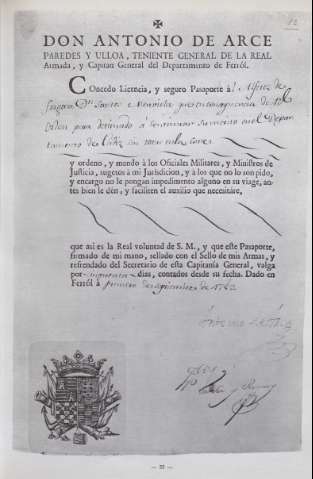 DON ANTONIO DE ARCE
PAREDES Y ULLOA, TENIENTE GENERAL DE LA REAL
Armada, y Capitan General del Departamento de Ferról.
Concedo Licencia, y seguro Pasaporte à l Alferez de
Fragata Dn
Orden para destinado à continuar su merito en el Depar-
tamento de Cadiz
y ordeno, y mando à los Oficiales Militares, y Ministros de
Justicia, sugetos à mi Jurisdicion, y à los que no lo son pido,
y encargo no le pongan impedimento alguno en su viage, an-
tes bien le dèn, y faciliten el auxilio que necesitáre,
que asi es la Real voluntad de S. M., y que este Pasaporte,
firmado de mi mano, sellado con el Sello de mis Armas, y
refrendado del Secretario de esta Capitanía General, valga
por dias, contados desde su fecha. Dado en
Ferról à primero de
Antonio de Arce